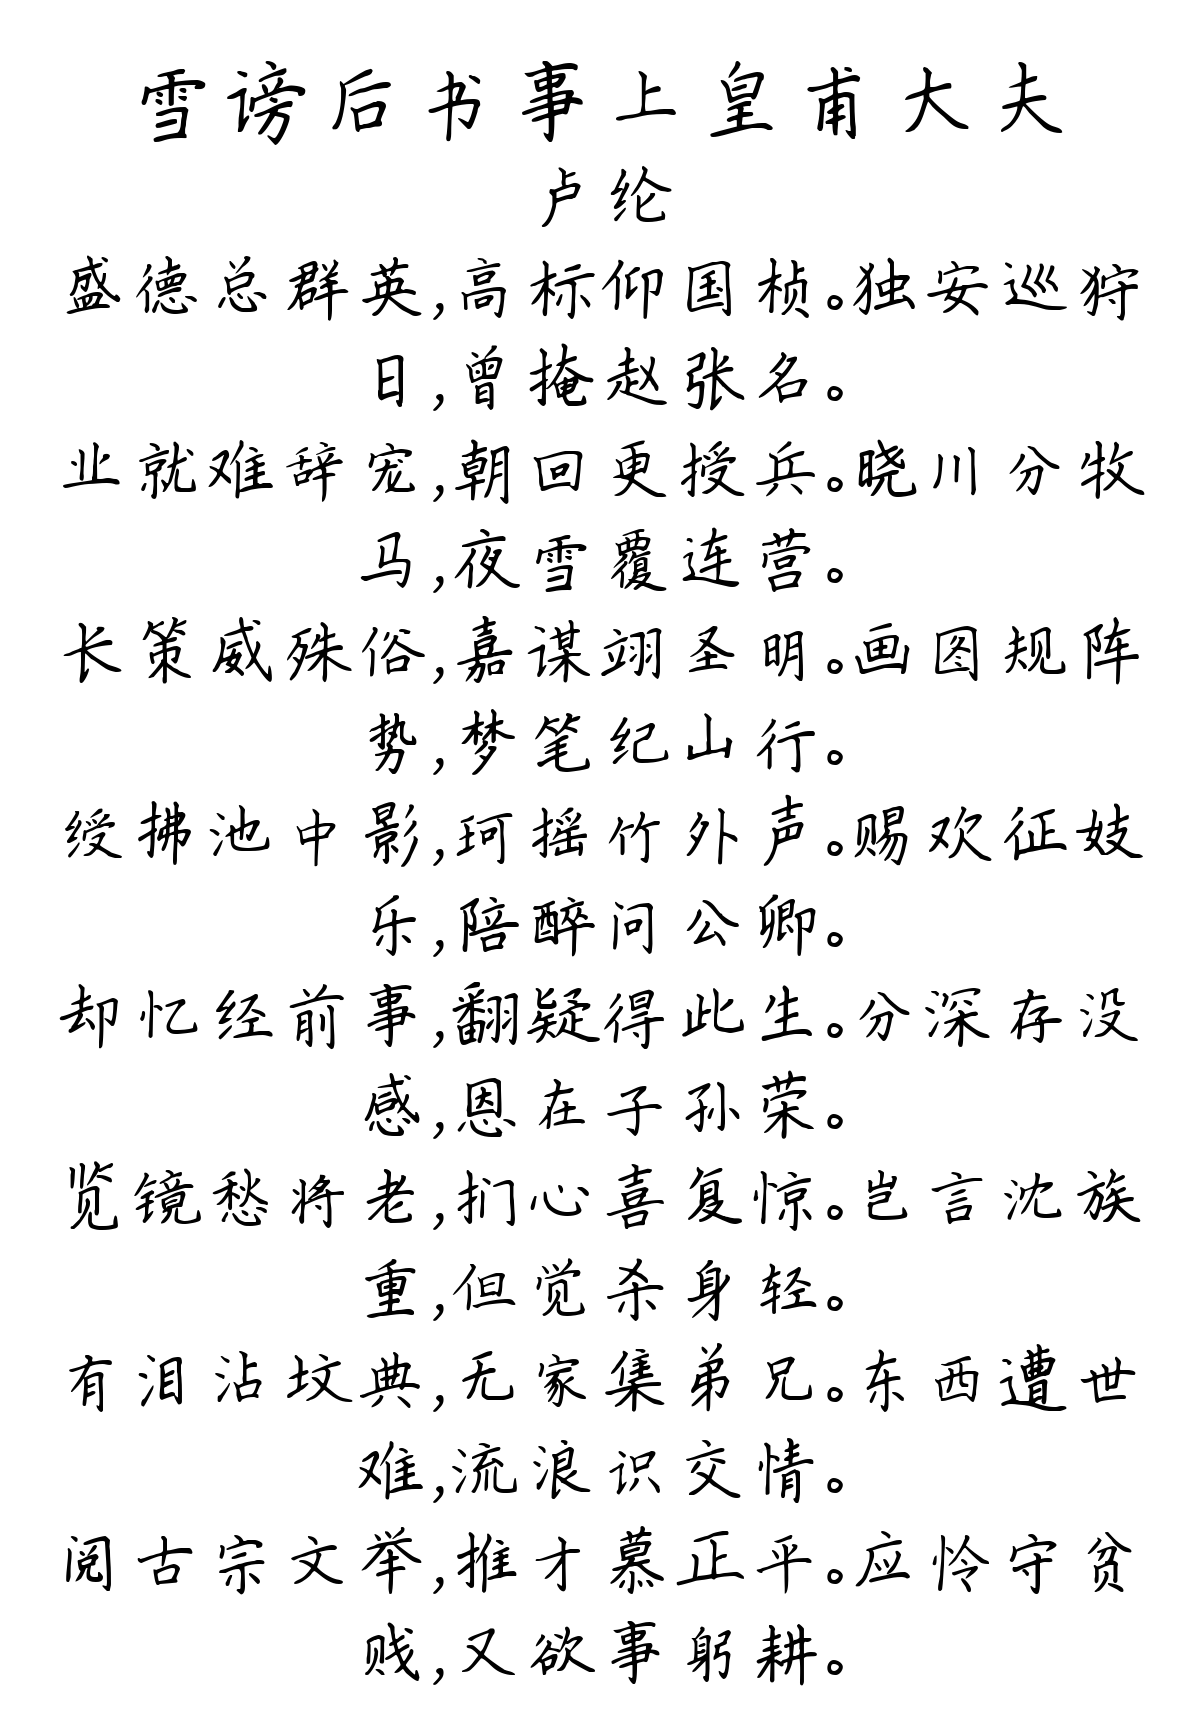 雪谤后书事上皇甫大夫
卢纶
盛德总群英,高标仰国桢。独安巡狩
日,曾掩赵张名。
业就难辞宠,朝回更授兵。晓川分牧
马,夜雪覆连营。
长策威殊俗,嘉谋翊圣明。画图规阵
势,梦笔纪山行。
绶拂池中影,珂摇竹外声。赐欢征妓
乐,陪醉问公卿。
却忆经前事,翻疑得此生。分深存没
感,恩在子孙荣。
览镜愁将老,扪心喜复惊。岂言沈族
重,但觉杀身轻。
有泪沾坟典,无家集弟兄。东西遭世
难,流浪识交情。
阅古宗文举,推才慕正平。应怜守贫
贱,又欲事躬耕。